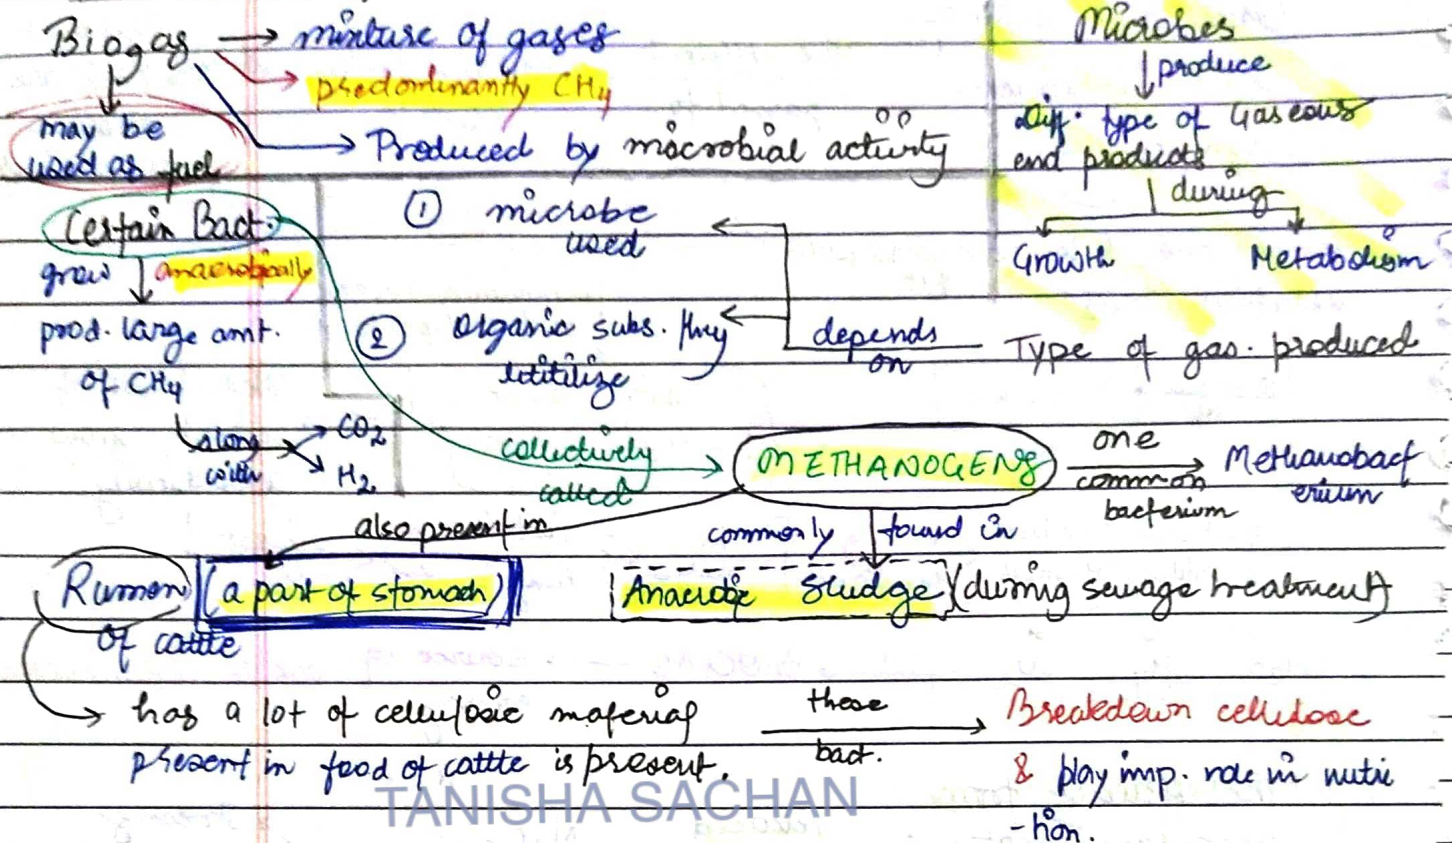 Biogas → mixture of gases
→ predominantly CH4
may be
used as fuel
→ Produced by microbial activity
Microbes
↓ produce
Diff. type of Gaseous
end products
during
Growth Metabolism
Certain Bact.
grow ↓ anaerobically
prod. large amt.
of CH4
along
with
CO2
H2
① microbe
used
② Organic subs. they
utitilize
depends
on
Type of gas. produced
collectively
called
METHANOGENS
one
common
bacterium
Methanobact
erium
also present in
commonly found in
Rumen (a part of stomach)
of cattle
Anaerobic Sludge (during sewage treatment)
→ has a lot of cellulosic material
present in food of cattle is present.
these
bact.
Breakdown cellulose
& play imp. role in nutri
-tion.
TANISHA SACHAN